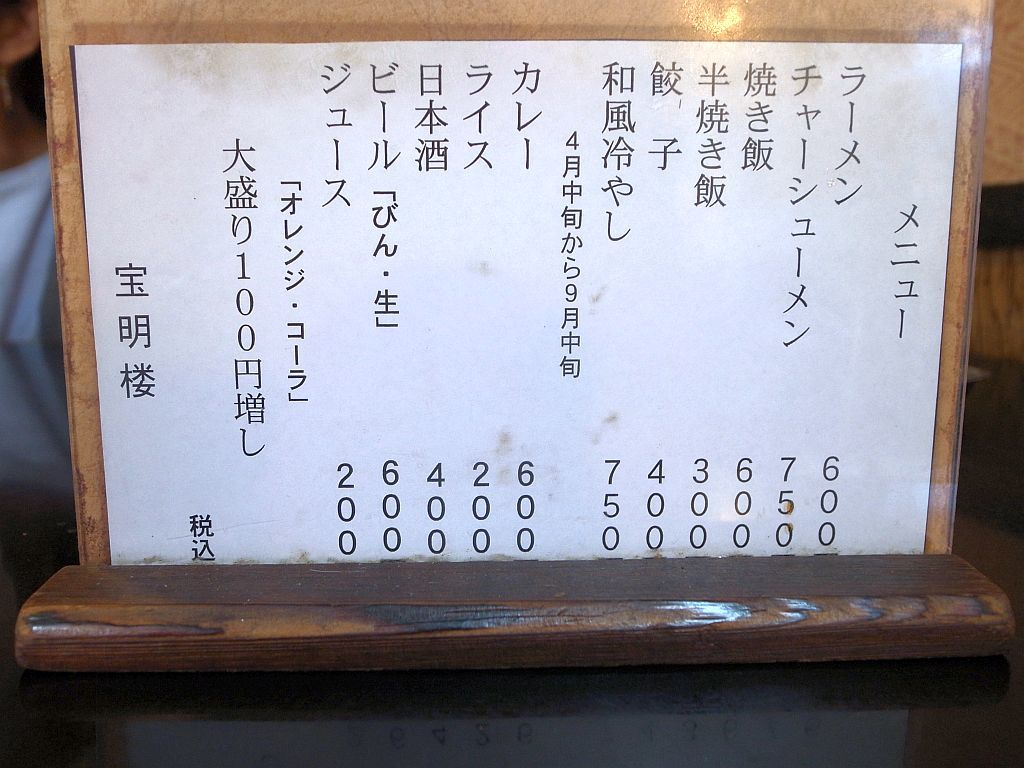 メニュー
ラーメン 600
チャーシューメン 750
焼き飯 600
半焼き飯 300
餃子 400
和風冷やし 750
4月中旬から9月中旬
カレー 600
ライス 200
日本酒 400
ビール「びん・生」 600
ジュース 200
「オレンジ・コーラ」
大盛り100円増し
税込
宝明楼